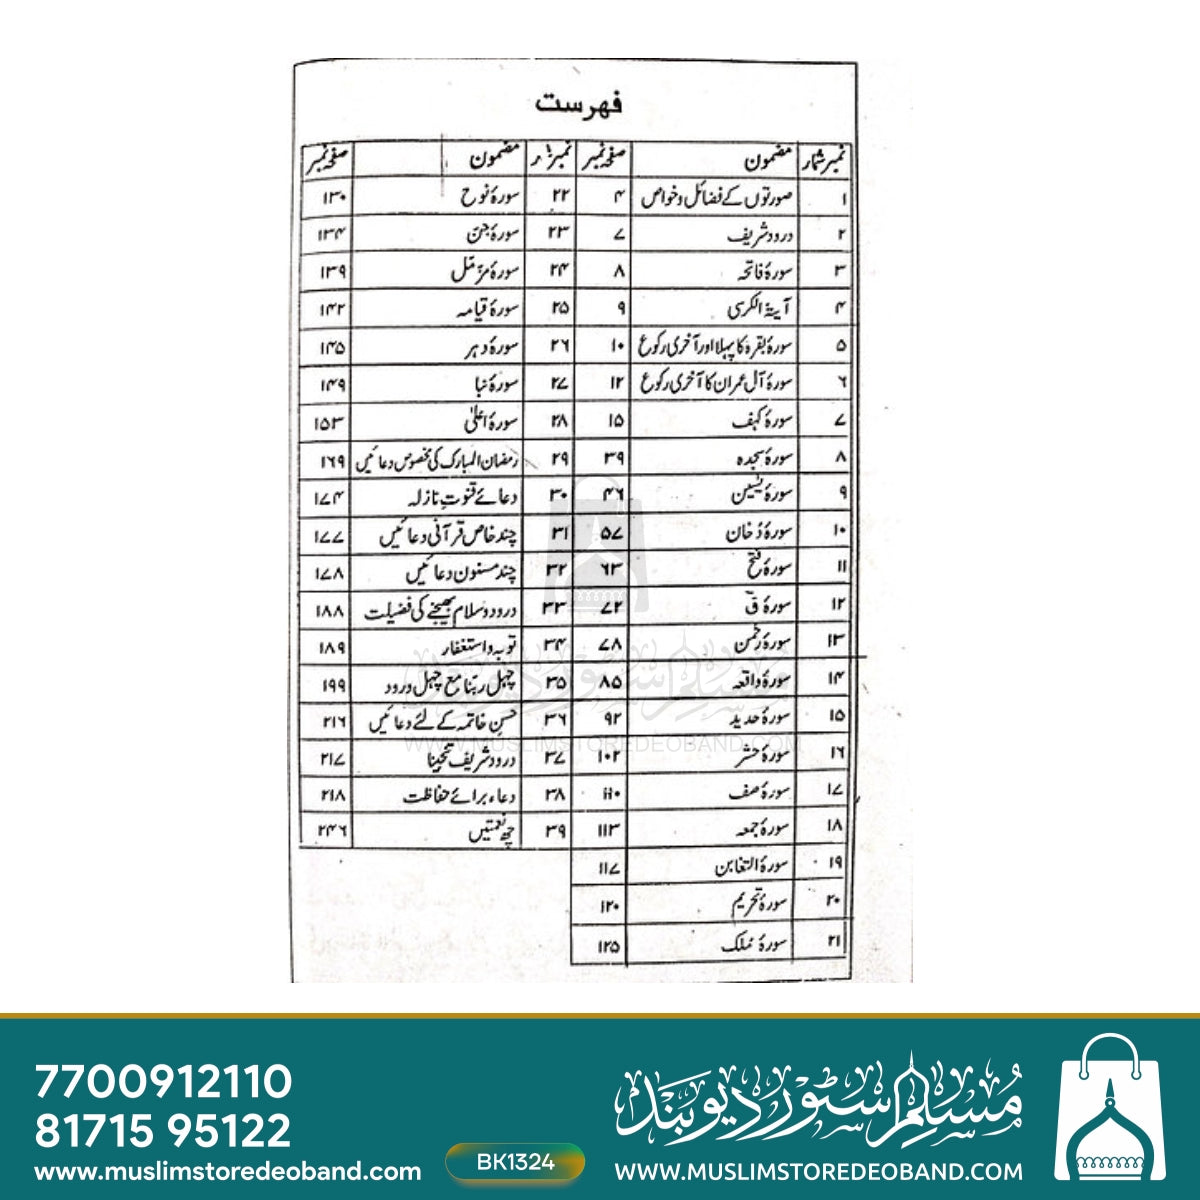 فهرست
نمبر شمار مضمون صفحہ نمبر
۱ صورتوں کے فضائل و خواص ۴
۲ درود شریف ۷
۳ سورۂ فاتحہ ۸
۴ آیۃ الکرسی ۹
۵ سورۂ بقرہ کا پہلا اور آخری رکوع ۱۰
۶ سورۂ آل عمران کا آخری رکوع ۱۲
۷ سورۂ کہف ۱۵
۸ سورۂ سجدہ ۳۹
۹ سورۂ یٰسین ۴۶
۱۰ سورۂ دُخان ۵۷
۱۱ سورۂ فتح ۶۳
۱۲ سورۂ قٓ ۷۲
۱۳ سورۂ رحمٰن ۷۸
۱۴ سورۂ واقعہ ۸۵
۱۵ سورۂ حدید ۹۲
۱۶ سورۂ حشر ۱۰۲
۱۷ سورۂ صف ۱۱۰
۱۸ سورۂ جمعہ ۱۱۳
۱۹ سورۂ التغابن ۱۱۷
۲۰ سورۂ تحریم ۱۲۰
۲۱ سورۂ مُلک ۱۲۵
مضمون صفحہ نمبر
۲۲ سورۂ نوح ۱۳۰
۲۳ سورۂ جن ۱۳۴
۲۴ سورۂ مزمّل ۱۳۹
۲۵ سورۂ قیامہ ۱۴۲
۲۶ سورۂ دہر ۱۴۵
۲۷ سورۂ نبا ۱۴۹
۲۸ سورۂ اعلیٰ ۱۵۳
۲۹ رمضان المبارک کی مخصوص دعائیں ۱۶۹
۳۰ دعائے قنوتِ نازلہ ۱۷۴
۳۱ چند خاص قرآنی دعائیں ۱۷۷
۳۲ چند مسنون دعائیں ۱۷۸
۳۳ درود و سلام بھیجنے کی فضیلت ۱۸۸
۳۴ توبہ و استغفار ۱۸۹
۳۵ چہل ربنا مع چہل درود ۱۹۹
۳۶ حسنِ خاتمہ کے لئے دعائیں ۲۱۶
۳۷ درود شریف تنجینا ۲۱۷
۳۸ دعاء برائے حفاظت ۲۱۸
۳۹ چھ نعمتیں ۲۴۶
مسلم سٹور دیوبند
WWW.MUSLIMSTOREDEOBAND.COM
7700912110
81715 95122
www.muslimstoredeoband.com
BK1324
مسلم سٹور دیوبند
WWW.MUSLIMSTOREDEOBAND.COM